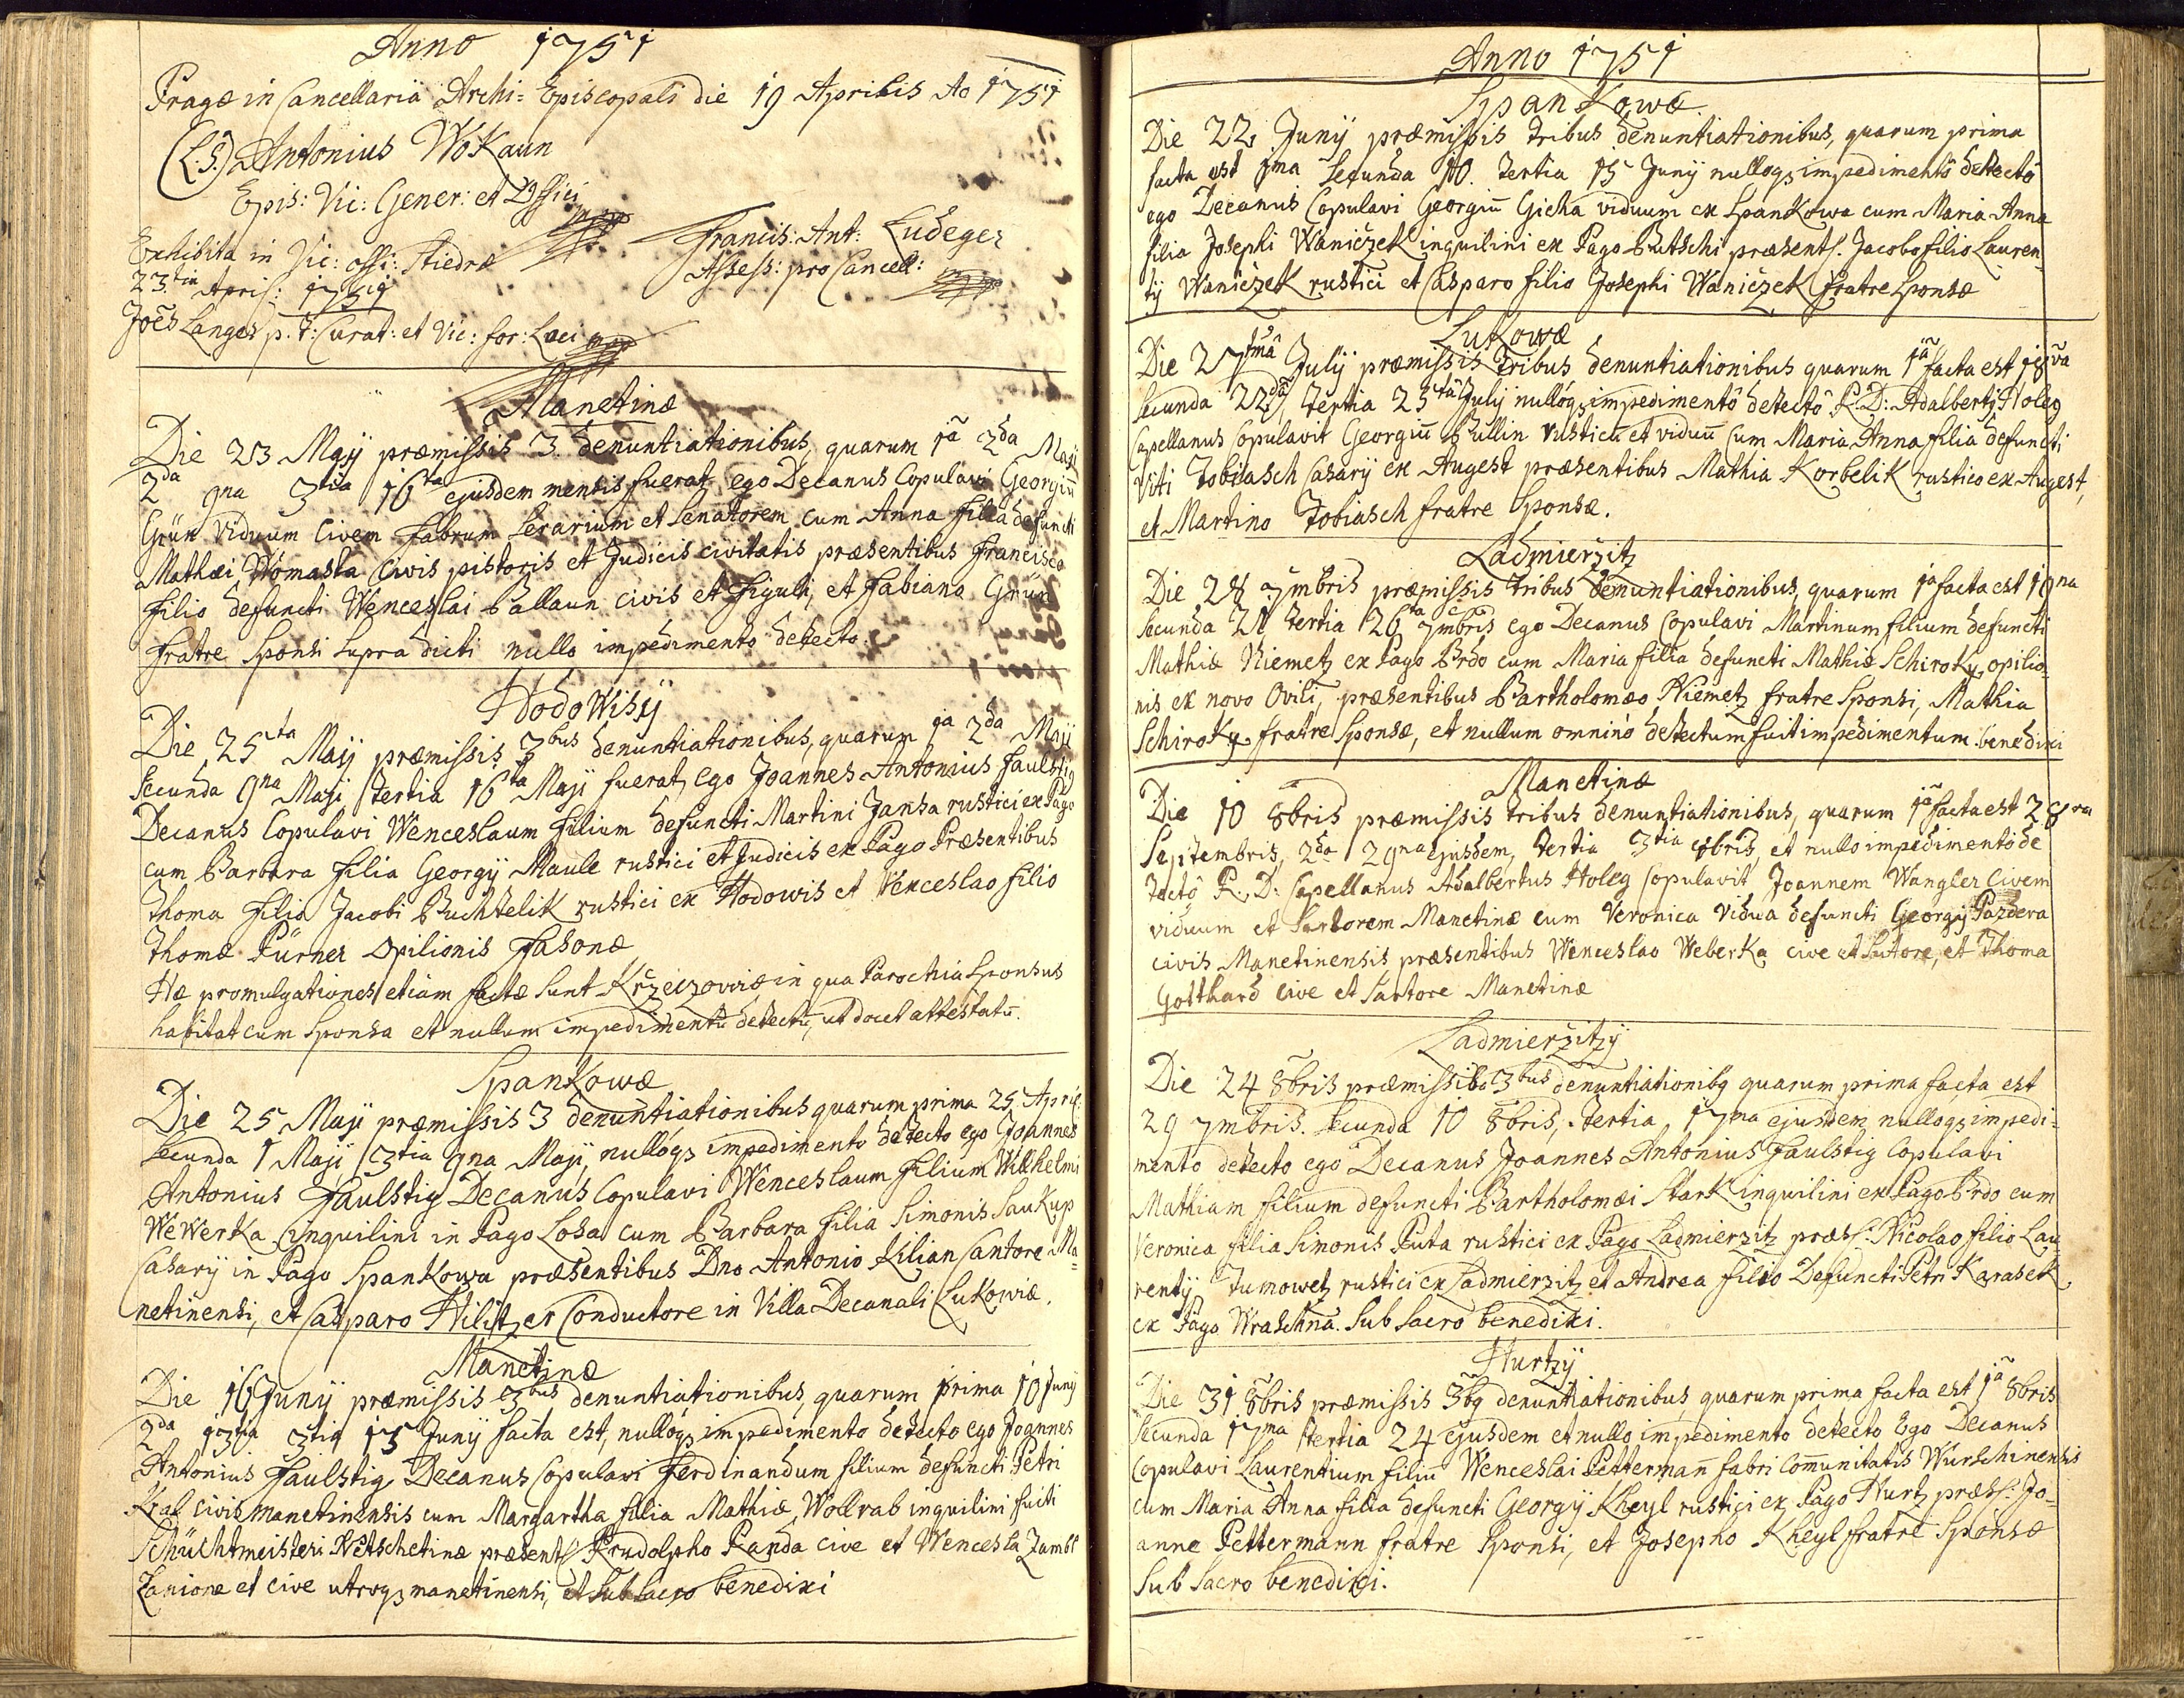 Anno 1751
Pragæ in Cancellaria Archi-Episcopali die 19 Aprilis Ao 1751
(L.S.) Antonius WoKaun
Epis: Vic: Gener: et Offici
Francis: Ant: Ludeger
Assess: pro Cancell:
Exhibita in Vic: offi: Stiedræ
23.tia Apris: 1751
Joēs Langer p.t: Curat: et Vic: for: Loci mpp
Manetinæ
Die 23 Maÿ præmissis 3 denuntiationibus, quarum 1ã 2da Maÿ
2da 9na 3tia 16ta ejusdem mensis fuerat, ego Decanus Copulavi Georgiū
Grün Viduum Civem Fabrum Serarium et Senatorem cum Anna filia defuncti
Mathæi Womasta Civis pistoris et Judicis civitatis præsentibus Francisco
filio defuncti Wenceslai Ballaun civis et Figuli, et Fabiano Grün
fratre Sponsi supra dicti nullo impedimento detecto.
HodoWisÿ
Die 25ta Maÿ præmissis 3bus denuntiationibus, quarum 1a 2da Maji
Secunda 9na Maji, tertia 16ta Maji fuerat, ego Joannes Antonius Faulstig
Decanus Copulavi Wenceslaum filium defuncti Martini Jansa rustici ex Pago
cum Barbara filia Georgÿ Maule rustici et Judicis ex Pago Præsentibus
Thoma filio Jacobi Buchtelik rustici ex Hodowis et Venceslao filio
Thomæ Pürner Opilionis Fasonæ
Hæ promulgationes etiam factæ sunt Kržeczoviæ in qua Parochia Sponsus
habitat cum Sponsa et nullum impedimentū detectū, ut docet attestatū.
SpanKowæ
Die 25 Maji præmissis 3 denuntiationibus quarum prima 25 April:
Secunda 1 Maji, 3tia 9na Maji, nulloqȝ impedimento detecto ego Joannes
Antonius Faulstig Decanus Copulavi Wenceslaum filium Wilhelmi
WeWerKa inquilini in Pago Losa cum Barbara filia Simonis SauKup
Casarÿ in Pago SpanKowa præsentibus Dno Antonio Kilian Cantore Ma-
netinensi, et Casparo Hilitzer Conductore in Villa Decanali LuKowiæ.
Manetinæ
Die 16 Junÿ præmissis 3bus denuntiationibus, quarum prima 10 Junÿ
2da 13tia 3tia 15 Junÿ facta est, nulloqȝ impedimento detecto ego Joannes
Antonius Faulstig Decanus Copulavi Ferdinandum filium defuncti Petri
Kral civis manetinensis cum Margartha filia Mathiæ Wollrab inquilini fuiti
Schüchtmeisteri Netschetinæ præsents Rrudolpho Randa cive et Wencesla Zambl
Lanione et cive utroqȝ manetinensi, et Sub Sacro benedixi
Anno 1751
SpanKowæ
Die 22 Junÿ præmissis tribus denuntiationibus, quarum prima
facta est 7ma Secunda 10. tertia 15 Junÿ nulloqȝ impedimento detecto
ego Decanus Copulavi Georgiū Gicha viduum ex SpanKowa cum Maria Anna
filia Josephi WaniczeK inquilini ex Pago Butschi præsents. Jacobo filio Lauren-
tÿ WaniczeK rustici et Casparo filio Josephi WaniczeK fratre Sponsæ
LuKowæ
Die 27tmâ Julÿ præmissis tribus denuntiationibus quarum 1ã facta est 18va
Secunda 22da, tertia 25ta Julÿ nulloqȝ impedimento detecto R.D: Adalberty Holeg
Capellanus Copulavit Georgiū Bullin rusticū et viduū cum Maria Anna filia defuncti
Viti Tobiasch Casarÿ ex Augest præsentibus Mathia KorbeliK rustico ex Augest,
et Martino Tobiasch fratre Sponsæ.
Ladmieržitz
Die 28 7mbris præmissis tribus denuntiationibus, quarum 1ã facta est 19na
Secunda 21 tertia 26ta 7mbris ego Decanus Copulavi Martinum filium defuncti
Mathiæ Niemetz ex Pago Brdo cum Maria filia defuncti Mathiæ SchiroKy, opilio-
nis ex novo Ovili, præsentibus Bartholomæo Niemetz fratre Sponsi, Mathia
SchiroKy fratre Sponsæ, et nullum omnino detectum fuit impedimentum. benedixi
Manetinæ
Die 10 8bris præmissis tribus denuntiationibus, quarum 1ã facta est 26ta
Septembris, 2da 29na ejusdem, tertia 3tia 8bris, et nullo impedimento de
tecto R., D: Capellanus Adalbertus Holeg Copulavit Joannem Wangler Civem
viduum et Sartorem Manetinæ cum Veronica Vidua defuncti Georgÿ Pazdera
civis Manetinensis præsentibus Wenceslao WeberKa cive et Sutore, et Thoma
Gotthard cive et Sartore Manetinæ
Ladmieržitzÿ
Die 24 8bris præmissibs 3bus denuntiationibq quarum prima facta est
29 7mbris. Secunda 10 8bris, tertia 17ma ejusdem, nulloqȝ impedi-
mento detecto ego Decanus Joannes Antonius Faulstig Copulavi
Mathiam filium defuncti Bartholomæi StarK inquilini ex Pago Brdo cum
Veronica filia Simonis Puta rustici ex Pago Ladmieržitz præss: Nicolao filio Lau-
rentÿ Tumowetz rustici ex Ladmieržitz et Andrea filio Defuncti Petri Karasek
ex Pago Wraschna. Sub Sacro benedixi.
Hurtzÿ
Die 31 8bris præmissis 3bq denuntiationibus, quarum prima facta est 1ã 8bris
Secunda 17ma tertia 24 ejusdem et nullo impedimento detecto Ego Decanus
Copulavi Laurentium filiū Wenceslai Pettermañ fabri Com̄unitatis Wurschinensis
cum Maria Anna filia defuncti Georgÿ Kheyl rustici ex Pago Hurtz præss: Jo-
anne Pettermann fratre Sponsi, et Josepho Kheyl fratre Sponsæ
Sub Sacro benedixi.